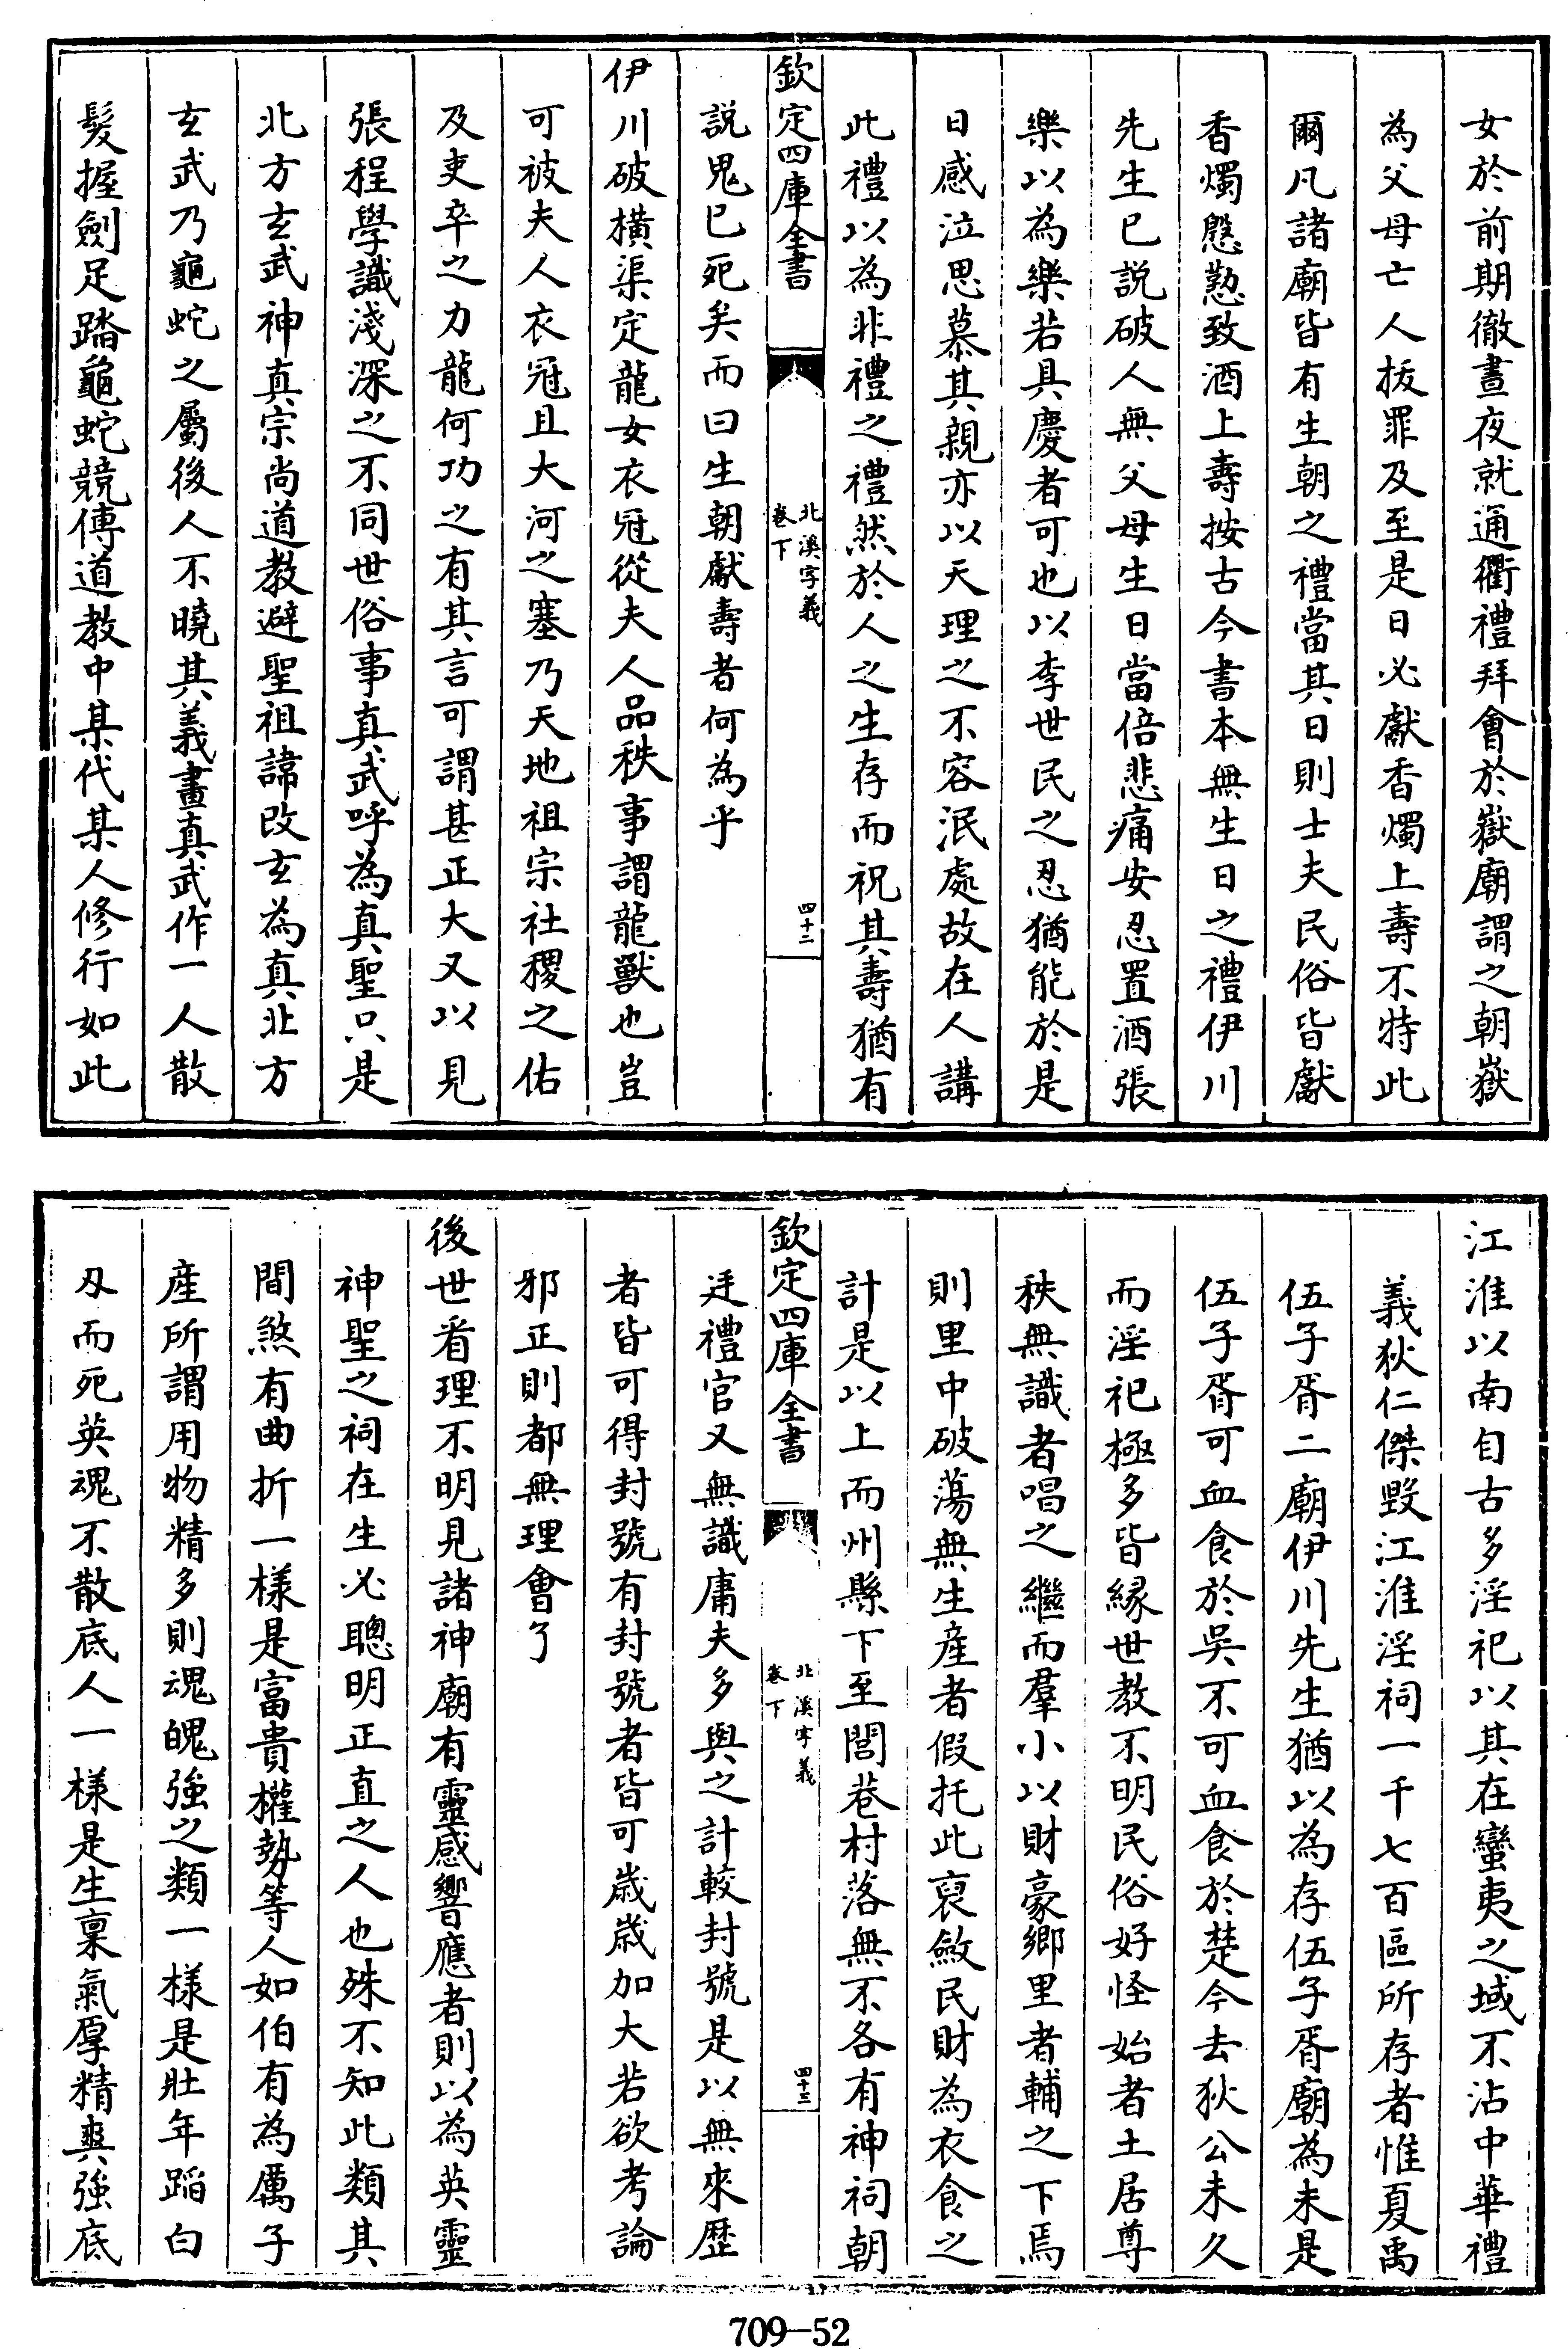 女於前期徹晝夜就通衢禮拜會於嶽廟謂之朝嶽
為父母亡人拔罪及至是日必獻香燭上壽不特此
爾凡諸廟皆有生朝之禮當其日則士夫民俗皆獻
香燭慇懃致酒上壽按古今書本無生日之禮伊川
先生已說破人無父母生日當倍悲痛安忍置酒張
樂以為樂若具慶者可也以李世民之忍猶能於是
日感泣思慕其親亦以天理之不容泯處故在人講
此禮以為非禮之禮然於人之生存而祝其壽猶有
欽定四庫全書
北溪字義
卷下
四十二
說鬼已死矣而曰生朝獻壽者何為乎
伊川破橫渠定龍女衣冠從夫人品秩事謂龍獸也豈
可被夫人衣冠且大河之塞乃天地祖宗社稷之佑
及吏卒之力龍何功之有其言可謂甚正大又以見
張程學識淺深之不同世俗事真武呼為真聖只是
北方玄武神真宗尚道教避聖祖諱改玄為真北方
玄武乃龜蛇之屬後人不曉其義畫真武作一人散
髮握劍足踏龜蛇競傳道教中某代某人修行如此
江淮以南自古多淫祀以其在蠻夷之域不沾中華禮
義狄仁傑毀江淮淫祠一千七百區所存者惟夏禹
伍子胥二廟伊川先生猶以為存伍子胥廟為未是
伍子胥可血食於吳不可血食於楚今去狄公未久
而淫祀極多皆緣世教不明民俗好怪始者土居尊
秩無識者唱之繼而羣小以財豪鄉里者輔之下焉
則里中破蕩無生產者假托此裒斂民財為衣食之
計是以上而州縣下至閭巷村落無不各有神祠朝
欽定四庫全書
北溪字義
卷下
四十三
廷禮官又無識庸夫多與之計較封號是以無來歷
者皆可得封號有封號者皆可歲歲加大若欲考論
邪正則都無理會了
後世看理不明見諸神廟有靈感響應者則以為英靈
神聖之祠在生必聰明正直之人也殊不知此類其
間煞有曲折一樣是富貴權勢等人如伯有為厲子
產所謂用物精多則魂魄強之類一樣是壯年蹈白
刃而死英魂不散底人一樣是生稟氣厚精爽強底
709—52